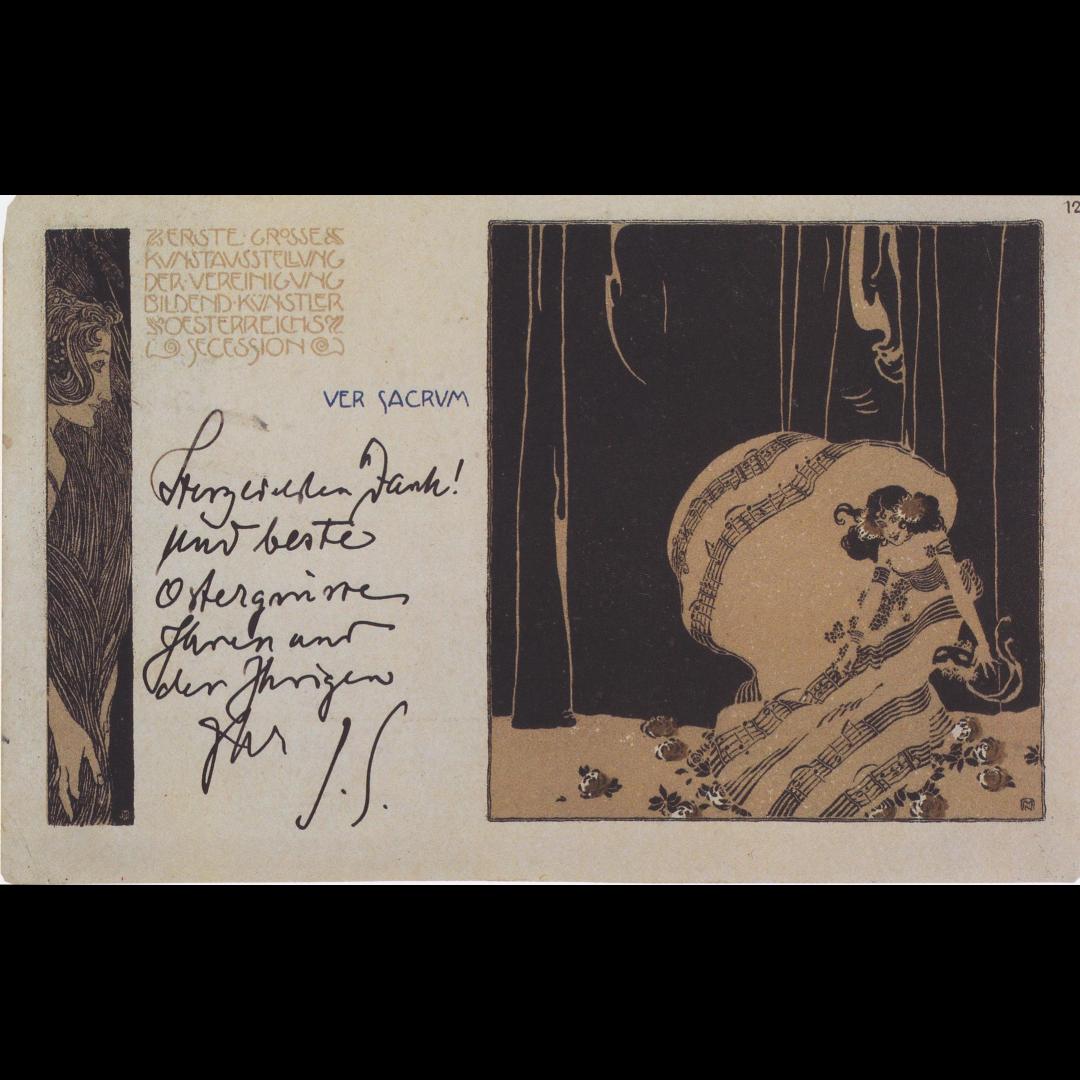 12
ERSTE · GROSSE
KVNSTAVSSTELLVNG
DER · VEREINIGVNG
BILDEND · KVNSTLER
OESTERREICHS
SECESSION
VER SACRVM
Herzlichen Dank!
und beste
Ostergrüsse
Ihnen und
den Ihrigen
Ihr J. S.